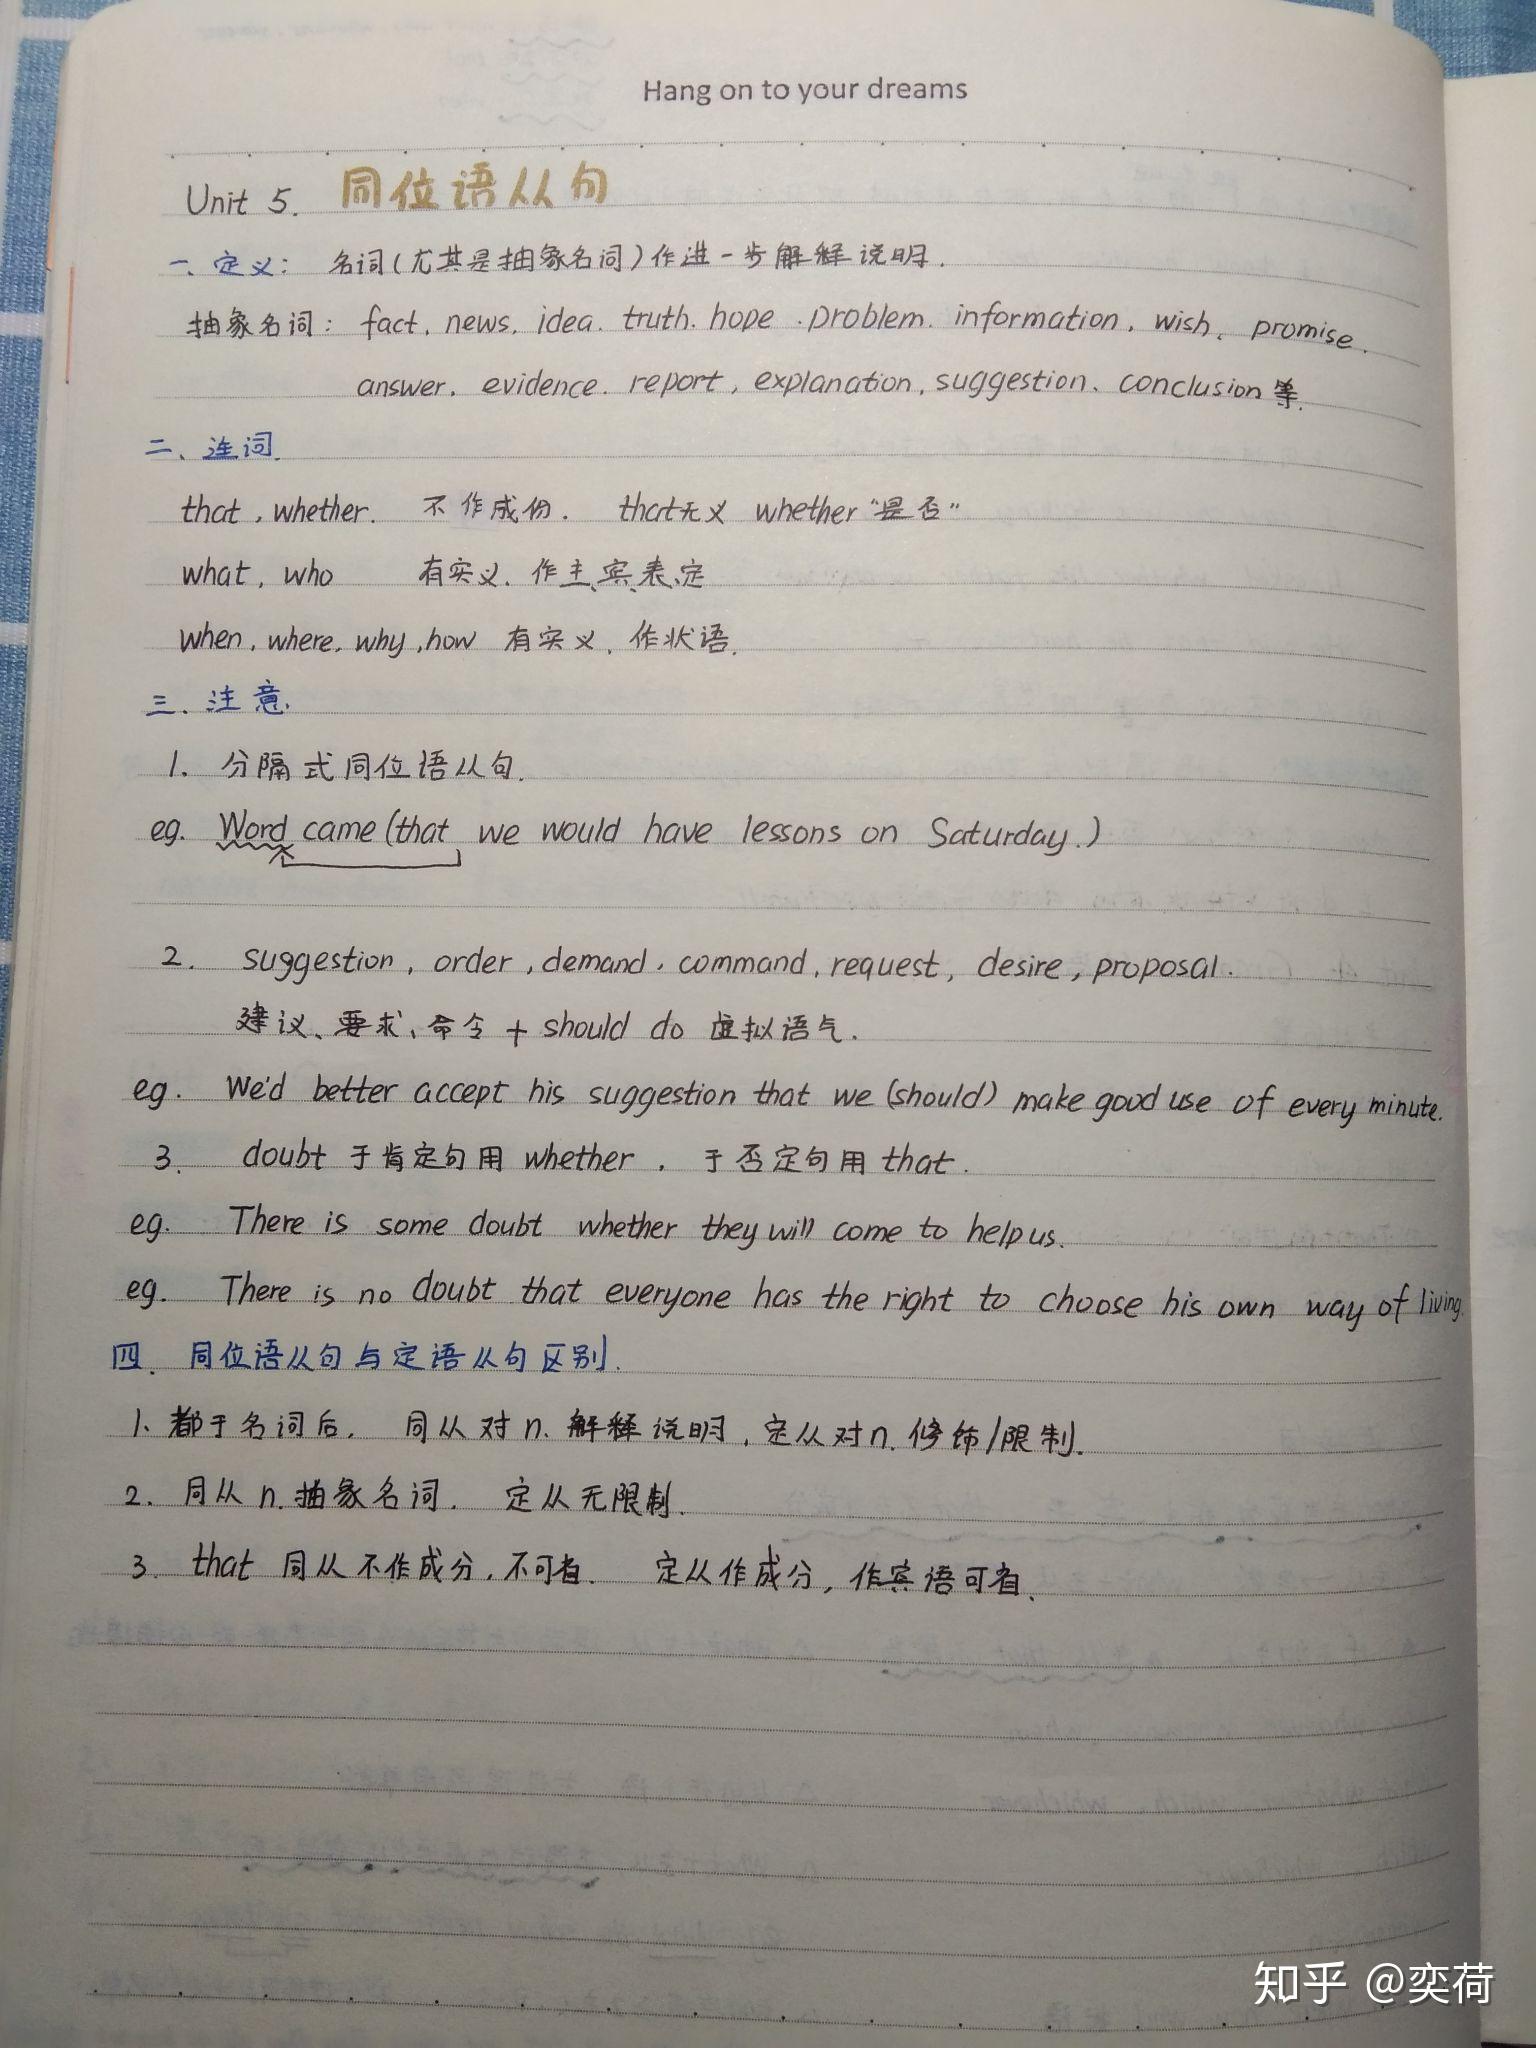 Hang on to your dreams
Unit 5. 同位语从句
一、定义： 名词(尤其是抽象名词)作进一步解释说明.
抽象名词: fact. news. idea. truth. hope. problem. information. wish. promise.
answer. evidence. report, explanation, suggestion. conclusion 等.
二、连词.
that, whether. 不作成份. that无义 whether "是否"
what, who 有实义. 作主、宾、表、定
when, where, why, how 有实义. 作状语.
三、注意.
1. 分隔式同位语从句.
eg. Word came (that we would have lessons on Saturday.)
2. suggestion, order, demand. command, request, desire, proposal.
建议、要求、命令 + should do 虚拟语气.
eg. We'd better accept his suggestion that we (should) make good use of every minute.
3. doubt 于肯定句用 whether, 于否定句用 that.
eg. There is some doubt whether they will come to help us.
eg. There is no doubt that everyone has the right to choose his own way of living.
四. 同位语从句与定语从句区别.
1. 都于名词后. 同从对 n. 解释说明, 定从对 n. 修饰/限制.
2. 同从 n. 抽象名词. 定从无限制.
3. that 同从不作成分, 不可省. 定从作成分, 作宾语可省.
知乎 @奕荷